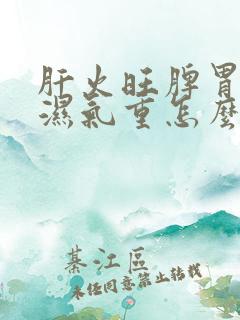 肝火旺脾胃
濕氣重怎麼
綦江區
未经同意禁止转载